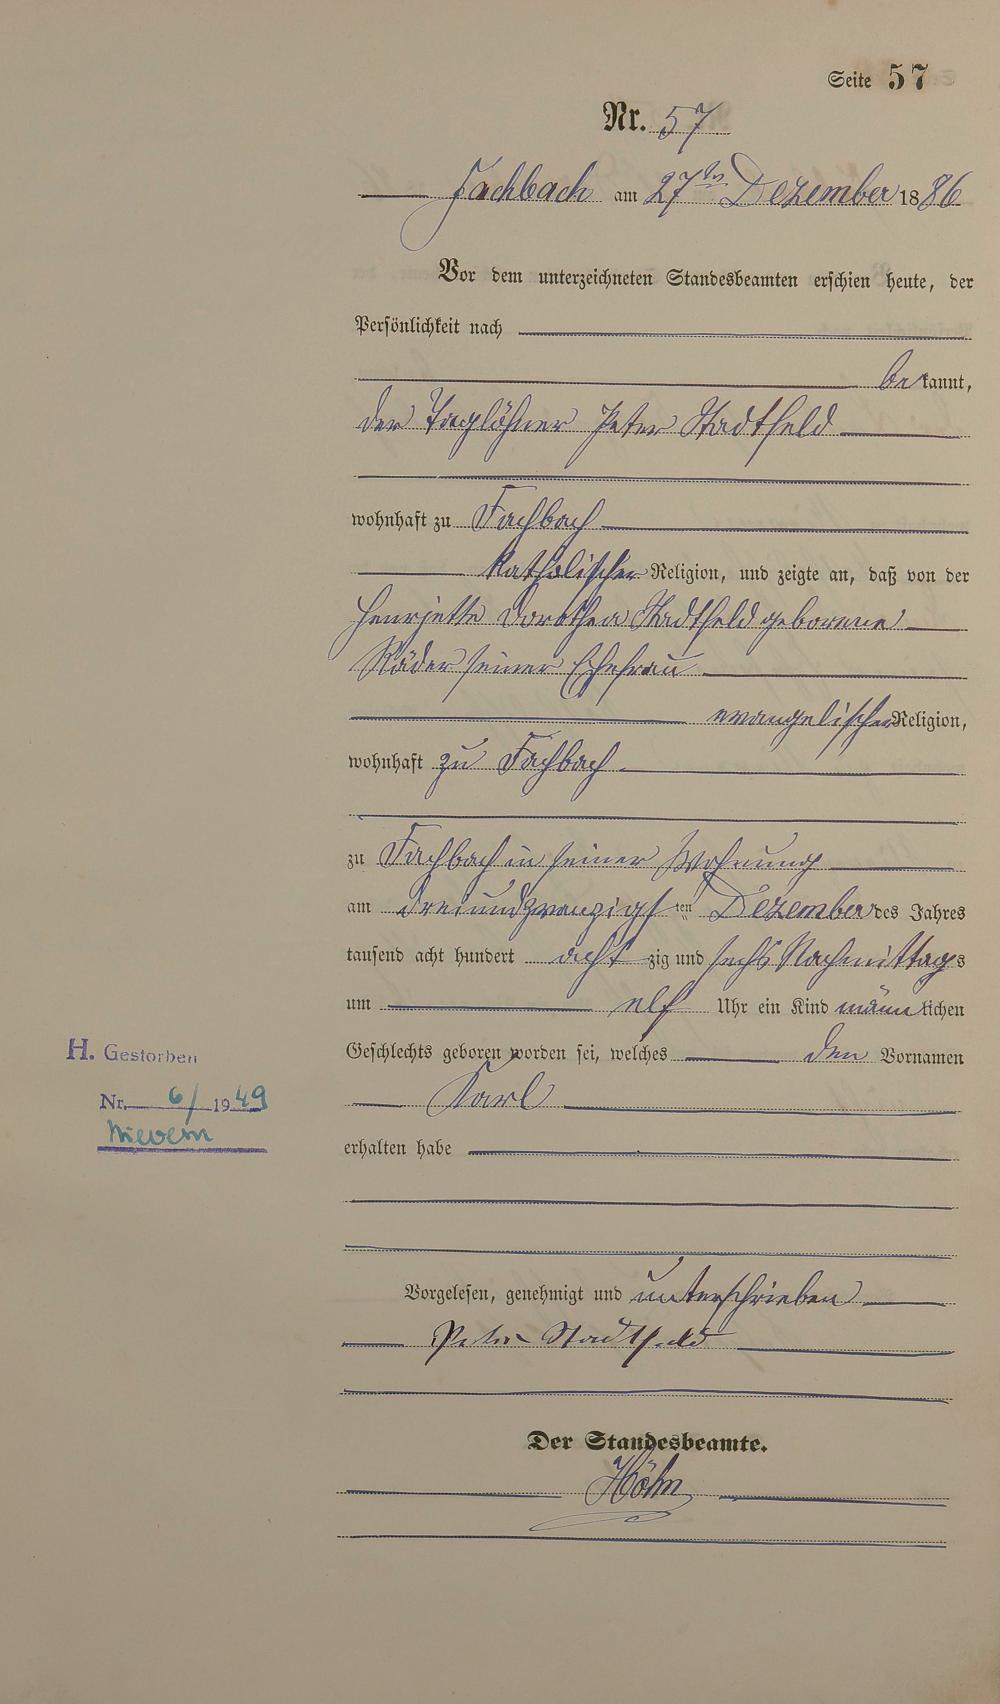 Seite 57
Nr. 57
Fachbach am 27ten Dezember 1886
Vor dem unterzeichneten Standesbeamten erschien heute, der
Persönlichkeit nach
bekannt,
der Taglöhner Peter Stadtfeld
wohnhaft zu Fachbach
katholischer Religion, und zeigte an, daß von der
Henrjette Dorothea Stadtfeld geborene
Räder seiner Ehefrau
evangelischer Religion,
wohnhaft zu Fachbach
zu Fachbach in seiner Wohnung
am dreiundzwanzigsten Dezember des Jahres
tausend acht hundert achtzig und sechs Nachmittags
um elf Uhr ein Kind männlichen
Geschlechts geboren worden sei, welches den Vornamen
H. Gestorben
Nr. 6/1949
Nievern
Karl
erhalten habe
Vorgelesen, genehmigt und unterschrieben
Peter Stadtfeld
Der Standesbeamte.
Höhn